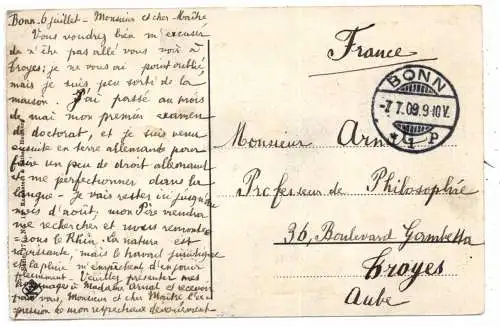 Bonn. 6 juillet - Monsieur et cher Maître
Vous voudrez bien m'excuser
de n'être pas allé vous voir à
Troyes; je ne vous ai point oublié,
mais je suis peu sorti de la
maison. J'ai passé au mois
de mai mon premier examen
de doctorat, et je suis venu
ensuite en terre allemande pour
faire un peu de droit allemand
et me perfectionner dans la
langue - Je vais rester ici jusqu'au
mois d'août, mon Père viendra
me rechercher et nous remonterons
sous le Rhin. La nature est
ravissante, mais le travail juridique
et la pluie m'empêchent d'en jouir
pleinement. Veuillez présenter mes
hommages à Madame Arnal et recevoir
pour vous, Monsieur et cher Maître l'ex-
pression de mon respectueux dévouement
France
BONN
-7.7.09.9-10V.
* 1 p
Monsieur Arnal
Professeur de Philosophie
36, Boulevard Gambetta
Troyes
Aube